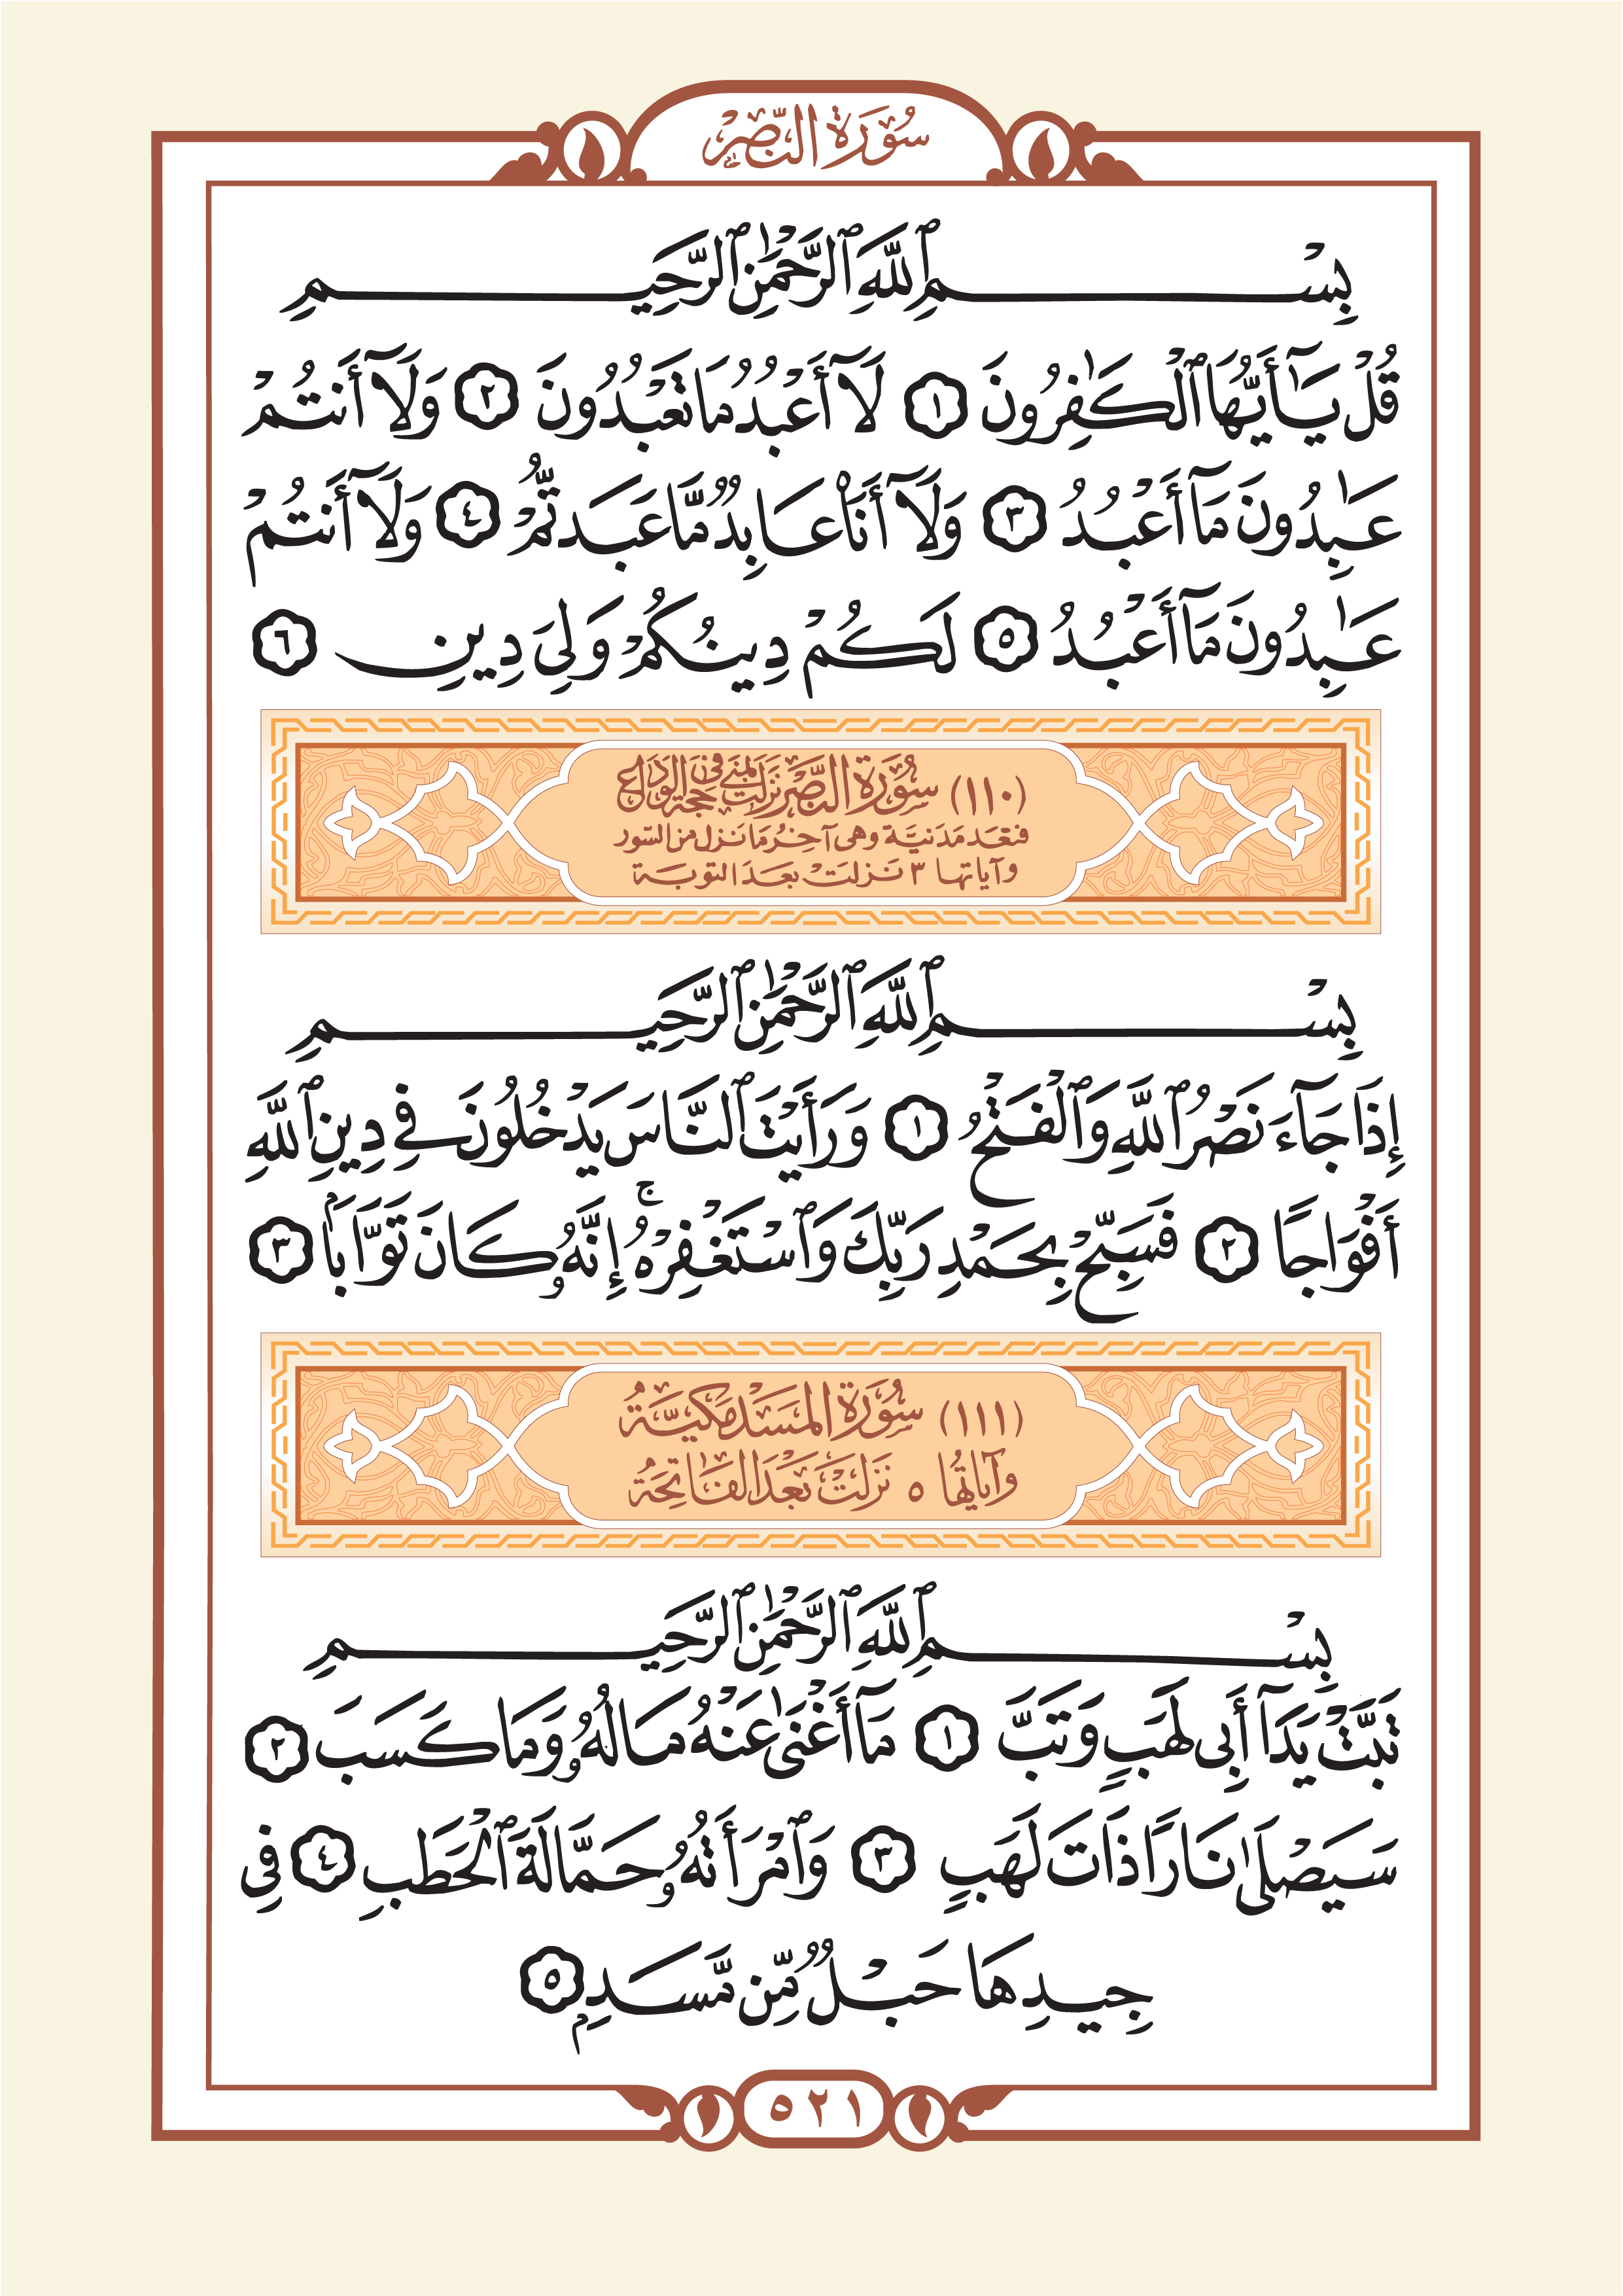 سُورَةُ النَّصْرِ
بِسْمِ ٱللَّهِ ٱلرَّحْمَٰنِ ٱلرَّحِيمِ
قُلْ يَـٰٓأَيُّهَا ٱلْكَـٰفِرُونَ ١ لَآ أَعْبُدُ مَا تَعْبُدُونَ ٢ وَلَآ أَنتُمْ
عَـٰبِدُونَ مَآ أَعْبُدُ ٣ وَلَآ أَنَا۠ عَابِدٌ مَّا عَبَدتُّمْ ٤ وَلَآ أَنتُمْ
عَـٰبِدُونَ مَآ أَعْبُدُ ٥ لَكُمْ دِينُكُمْ وَلِىَ دِينِ ٦
(١١٠) سُورَةُ النَّصْرِ نَزَلَتْ بِمِنًى فِى حَجَّةِ الْوَدَاعِ
فَتُعَدُّ مَدَنِيَّة وهى آخِرُ مَا نَزَل مِنَ السُّوَر
وآياتها ٣ نَزَلَتْ بَعْدَ التوبَة
بِسْمِ ٱللَّهِ ٱلرَّحْمَٰنِ ٱلرَّحِيمِ
إِذَا جَآءَ نَصْرُ ٱللَّهِ وَٱلْفَتْحُ ١ وَرَأَيْتَ ٱلنَّاسَ يَدْخُلُونَ فِى دِينِ ٱللَّهِ
أَفْوَاجًا ٢ فَسَبِّحْ بِحَمْدِ رَبِّكَ وَٱسْتَغْفِرْهُ ۚ إِنَّهُۥ كَانَ تَوَّابَۢا ٣
(١١١) سُورَةُ الْمَسَدِ مَكِّيَّةٌ
وَآيَاتُهَا ٥ نَزَلَتْ بَعْدَ الْفَاتِحَةِ
بِسْمِ ٱللَّهِ ٱلرَّحْمَٰنِ ٱلرَّحِيمِ
تَبَّتْ يَدَآ أَبِى لَهَبٍ وَتَبَّ ١ مَآ أَغْنَىٰ عَنْهُ مَالُهُۥ وَمَا كَسَبَ ٢
سَيَصْلَىٰ نَارًا ذَاتَ لَهَبٍ ٣ وَٱمْرَأَتُهُۥ حَمَّالَةَ ٱلْحَطَبِ ٤ فِى
جِيدِهَا حَبْلٌ مِّن مَّسَدِۭ ٥
٥٢١